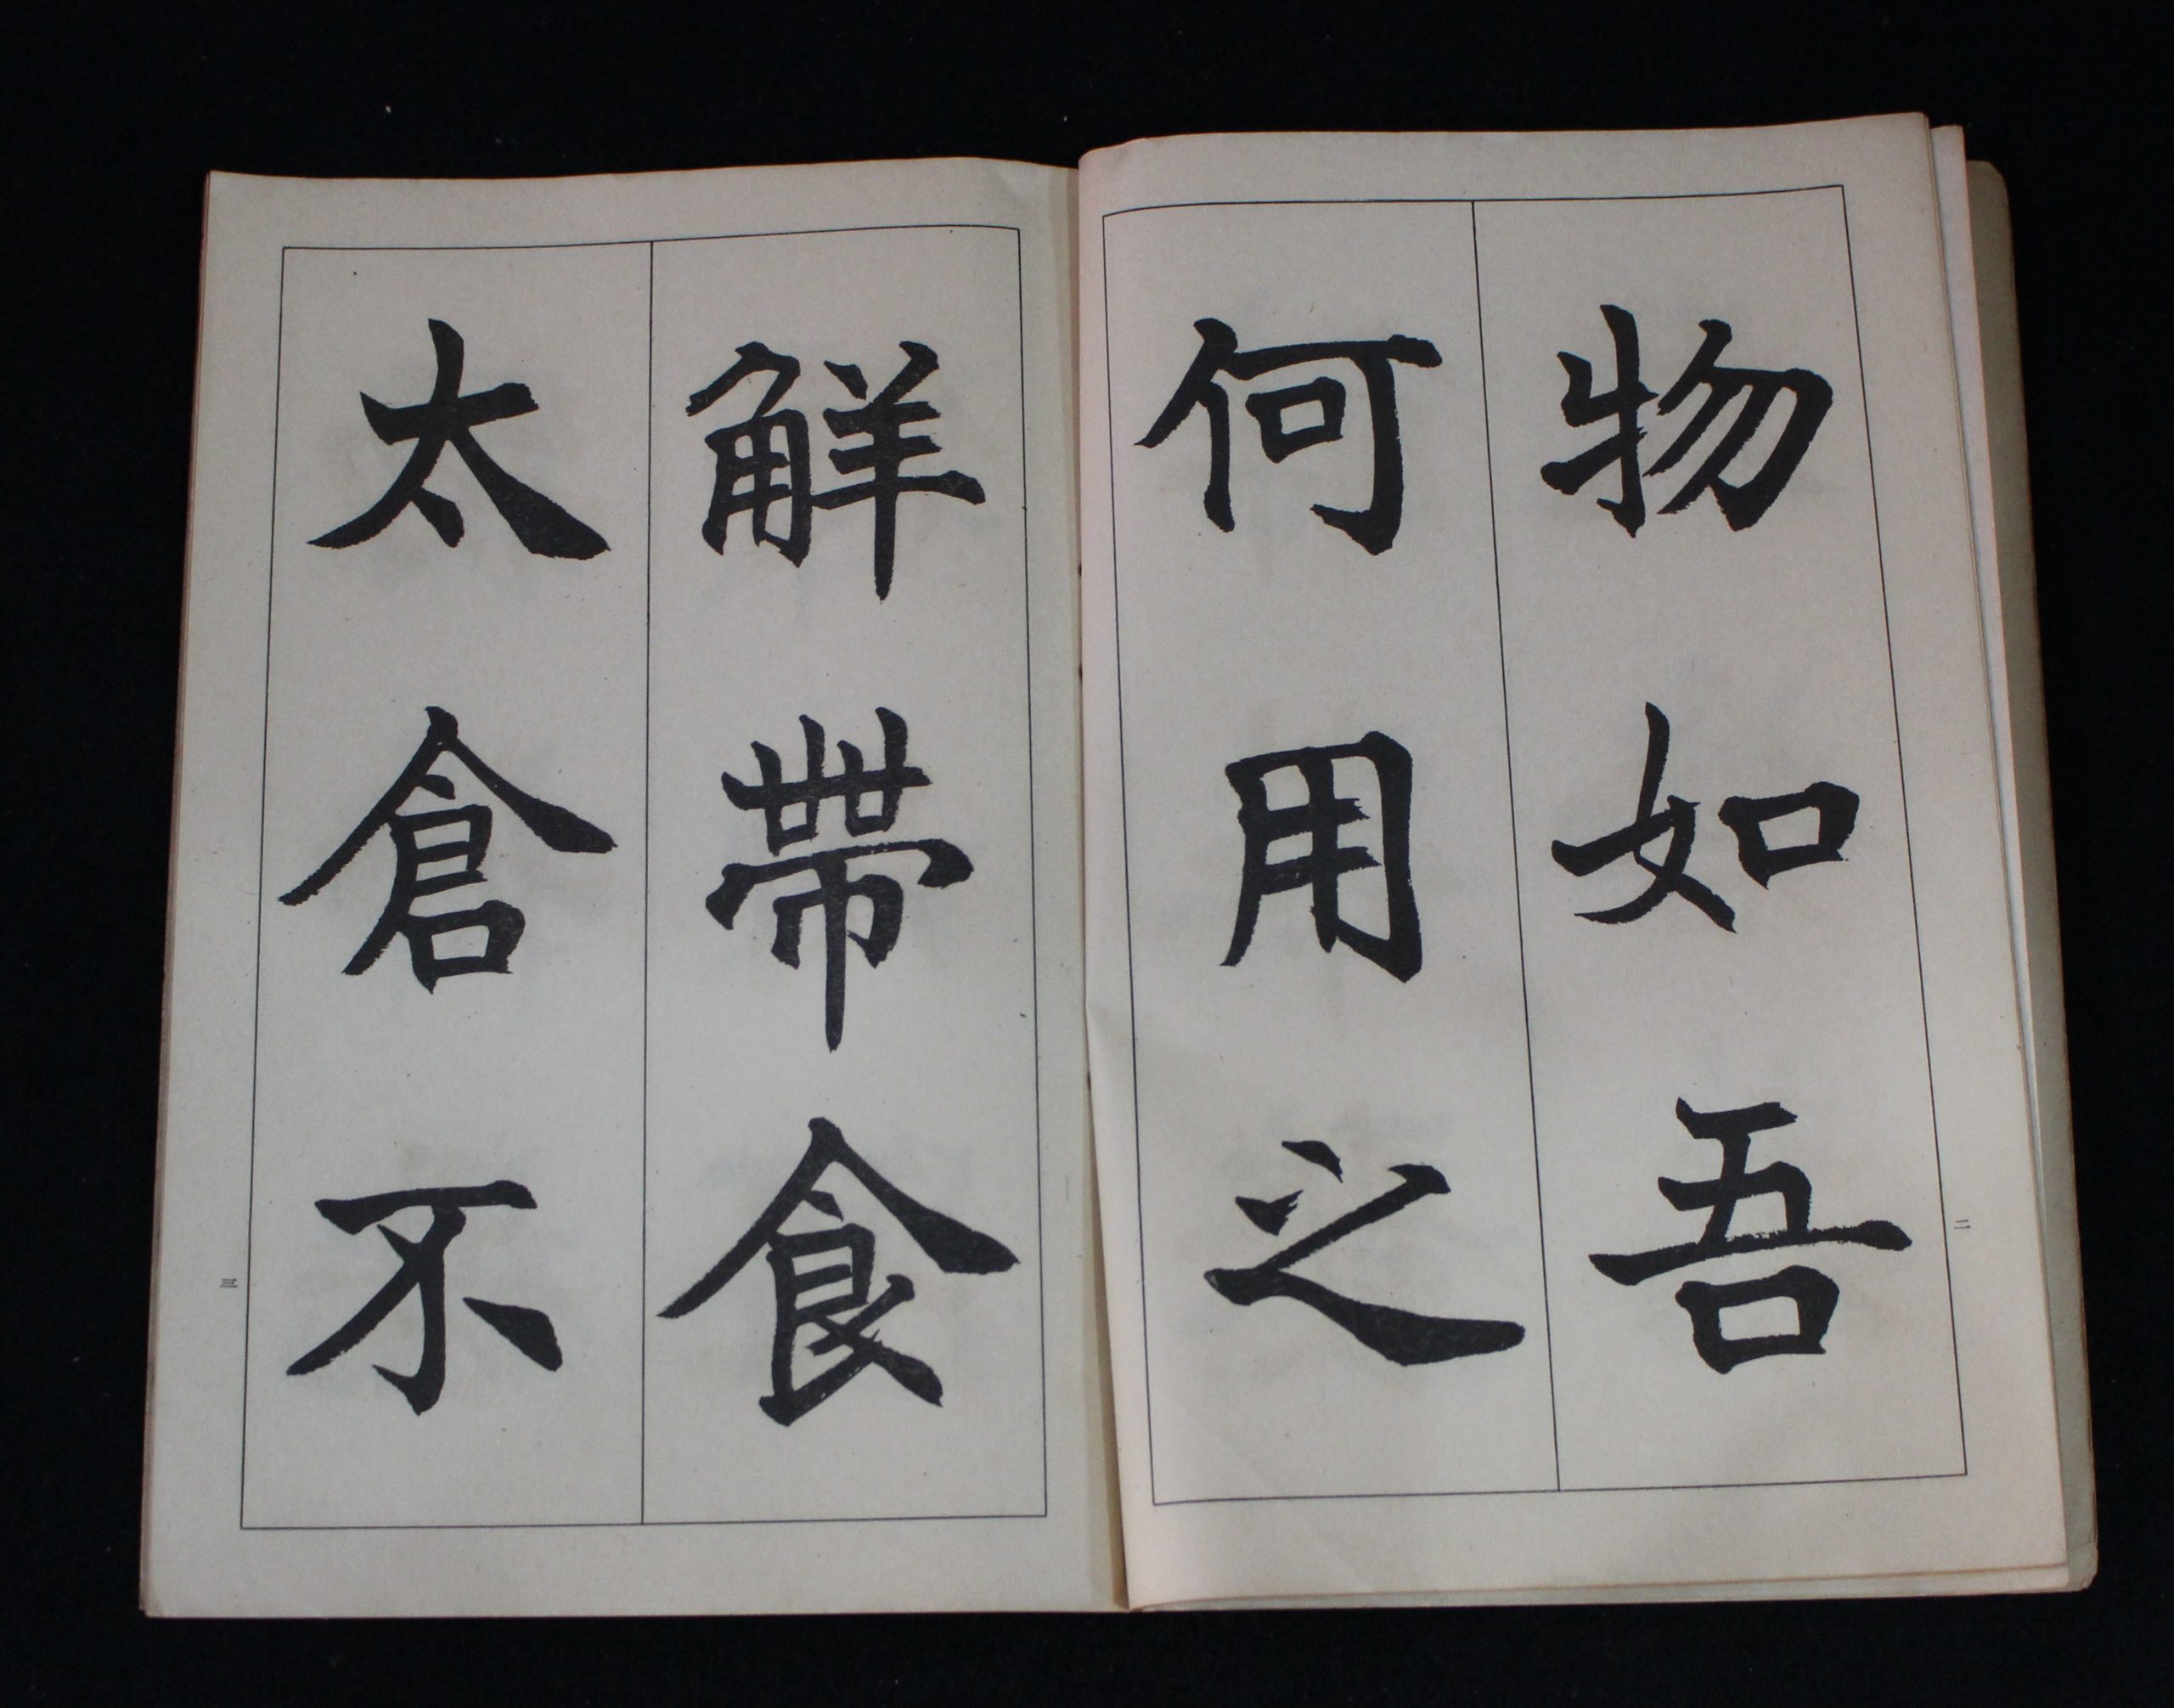 物如吾
何用之
二
觧帶食
太倉不
三